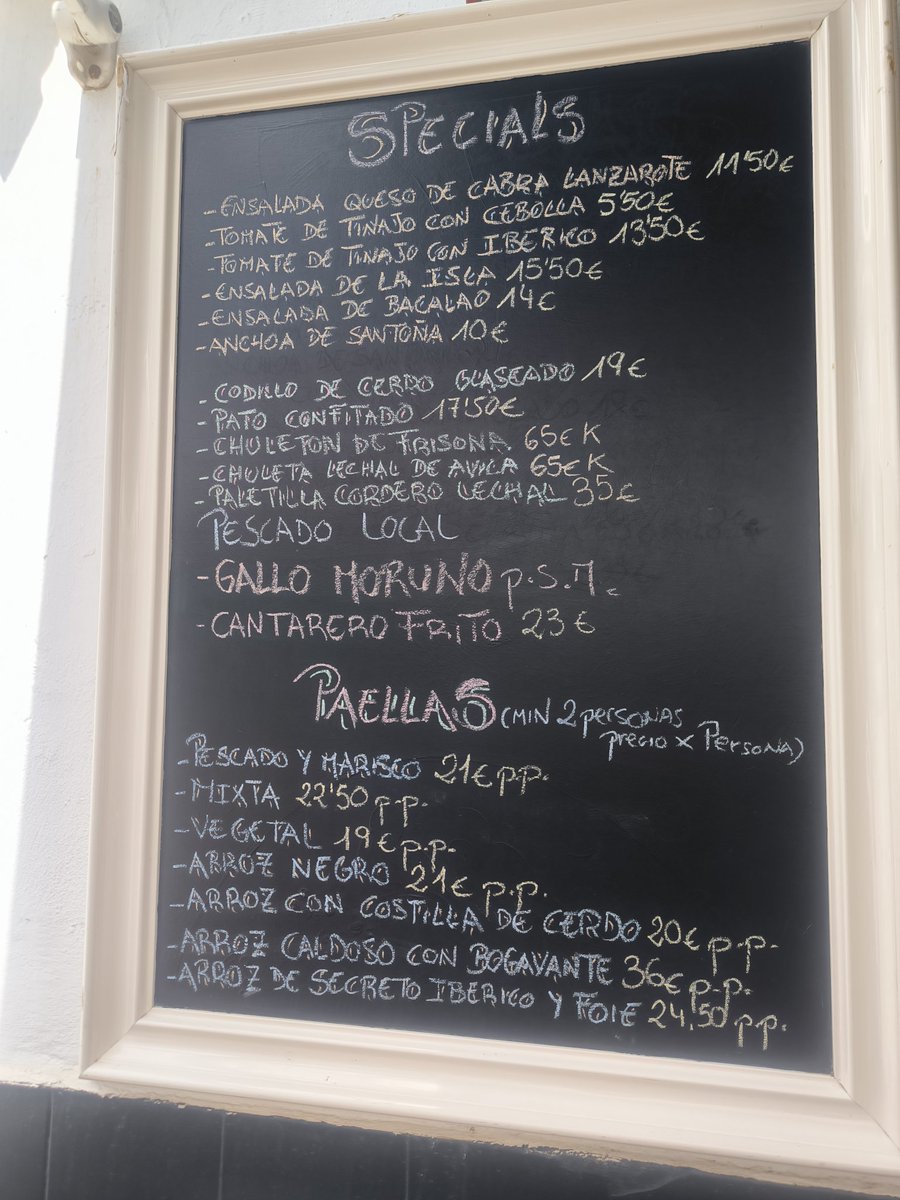 SPECIALS
- ENSALADA QUESO DE CABRA LANZAROTE 11'50€
- TOMATE DE TINAJO CON CEBOLLA 550€
- TOMATE DE TINAJO CON IBERICO 13'50€
- ENSALADA DE LA ISLA 15'50€
- ENSALADA DE BACALAO 14€
- ANCHOA DE SANTOÑA 10€
- CODILLO DE CERDO GLASEADO 19€
- PATO CONFITADO 17'50€
- CHULETON DE FRISONA 65€ K
- CHULETA LECHAL DE AVILA 65€ K
- PALETILLA CORDERO LECHAL 35€
PESCADO LOCAL
- GALLO MORUNO p.S.M.
- CANTARERO FRITO 23€
PAELLAS (MIN 2 personas
precio x Persona)
- PESCADO Y MARISCO 21€ p.p.
- MIXTA 22'50 p.p.
- VEGETAL 19€ p.p.
- ARROZ NEGRO 21€ p.p.
- ARROZ CON COSTILLA DE CERDO 20€ p.p.
- ARROZ CALDOSO CON BOGAVANTE 36€ p.p.
- ARROZ DE SECRETO IBERICO Y FOIE 24,50 p.p.